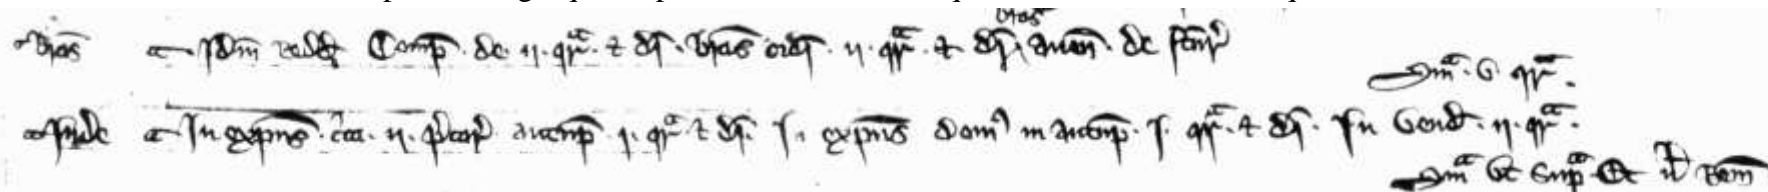 Bras Idm redd Comp de ij qr & di bras ordi ij qr & di bras auen de firm
Sma v qr
Inde In expens cca ij autump j qr & di In expens dom in autump j qr & di In vend ij qr
Sma ut supa Et nl Rem